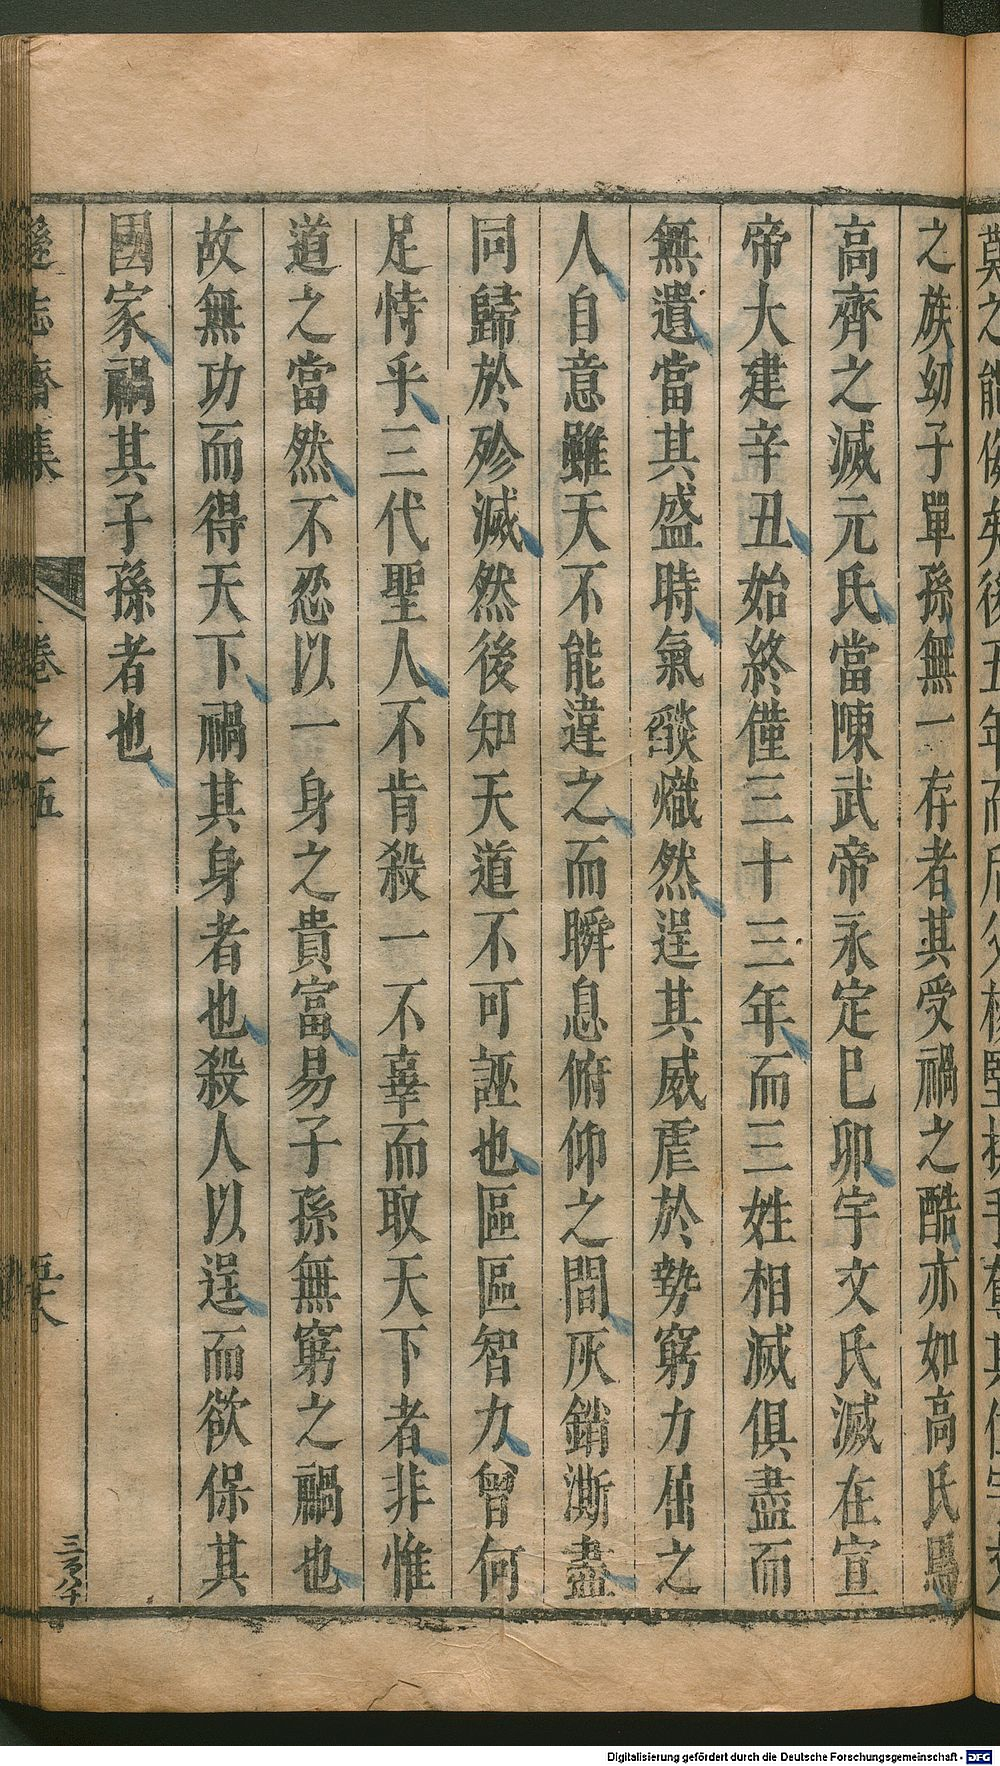 之族幼子單孫無一存者其受禍之酷亦如高氏焉
高齊之滅元氏當陳武帝永定巳卯宇文氏滅在宣
帝大建辛丑始終僅三十三年而三姓相滅俱盡而
無遺當其盛時氣燄熾然逞其威虐於勢窮力屈之
人自意雖天不能違之而瞬息俯仰之間灰銷澌盡
同歸於殄滅然後知天道不可誣也區區智力曾何
足恃乎三代聖人不肯殺一不辜而取天下者非惟
道之當然不忍以一身之貴富易子孫無窮之禍也
故無功而得天下禍其身者也殺人以逞而欲保其
國家禍其子孫者也
遜志齋集 卷之五
Digitalisierung gefördert durch die Deutsche Forschungsgemeinschaft - DFG